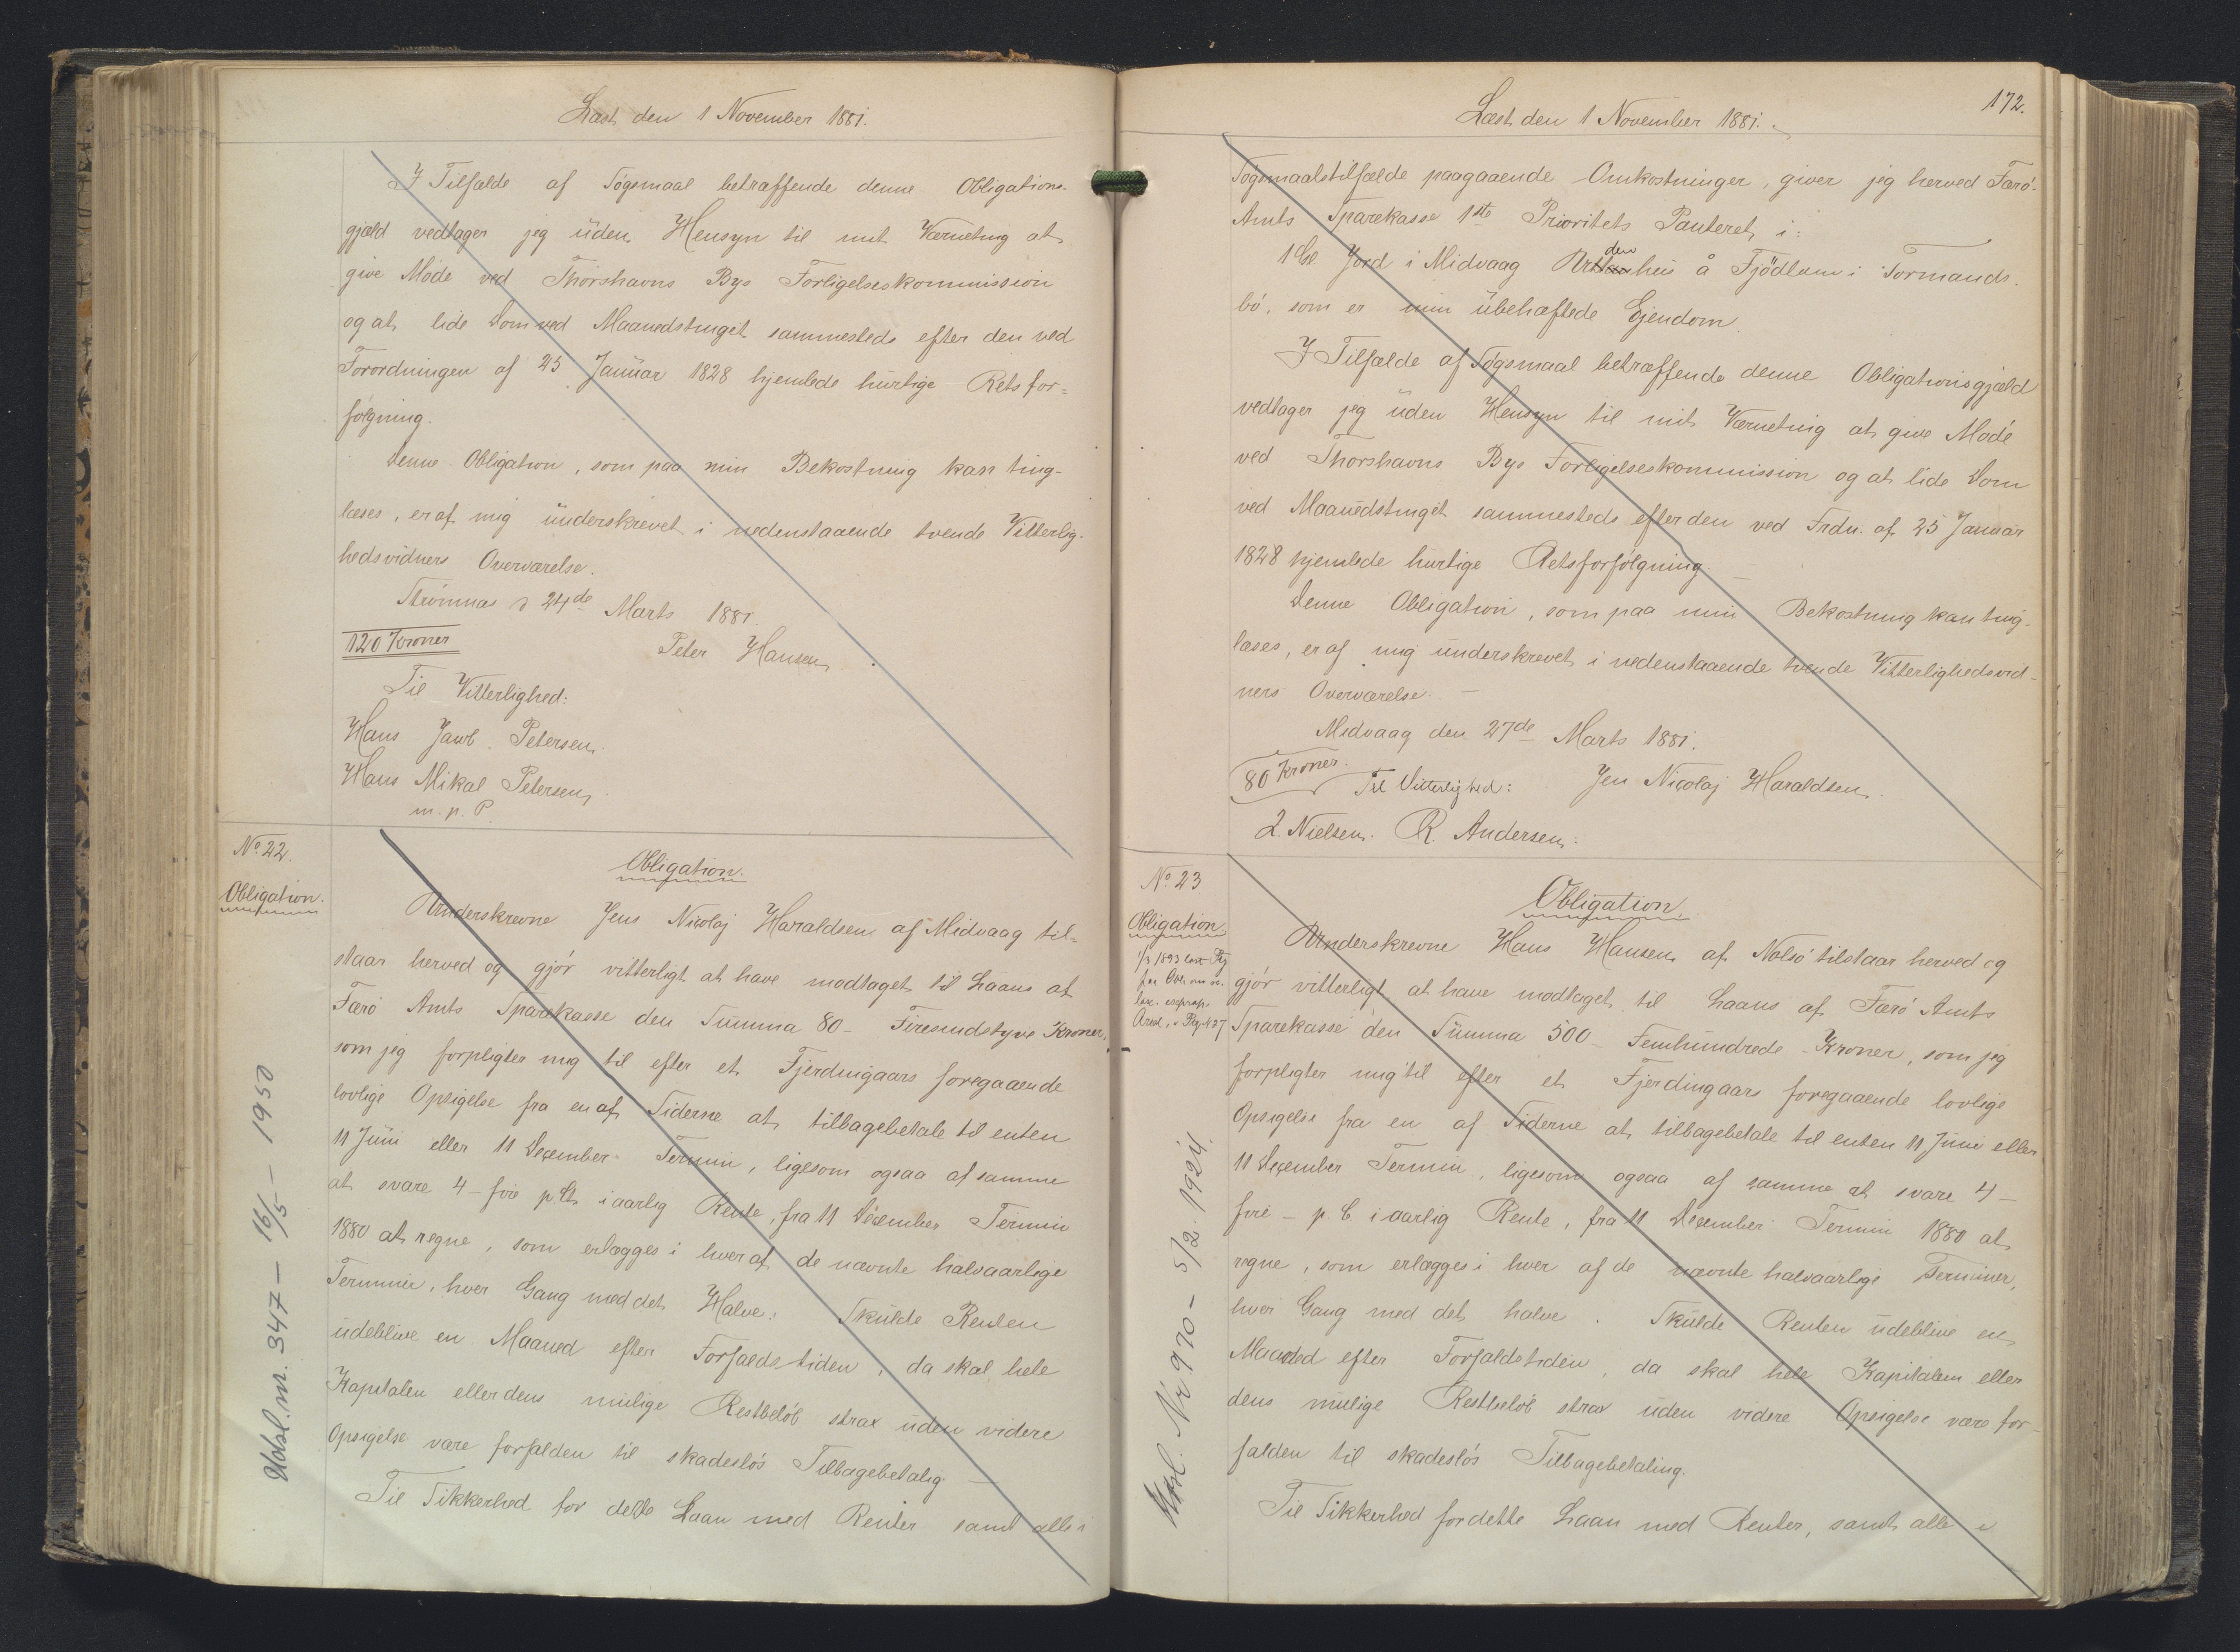 Læst den 1 November 1881.
I Tilfælde af Søgsmaal betræffende denne Obligations-
gjæld vedtager jeg uden Hensyn til mit Værneting at
give Møde ved Thorshavns Bys Forligelseskommission
og at lide Dom ved Maanedstinget sammesteds efter den ved
Forordningen af 25 Januar 1828 hjemlede hurtige Retsfor=
følgning.
Denne Obligation, som paa min Bekostning kan ting-
læses, er af mig underskrevet i nedenstaaende tvende Vitterlig-
hedsvidners Overværelse.
Strømnæs d 24de Marts 1881.
120 Kroner
Peter Hansen
Til Vitterlighed:
Hans Jacob Petersen.
Hans Mikal Petersen
m. p. P.
No. 22.
Obligation.
Obligation.
Underskrevne Jens Nicolaj Haraldsen af Midvaag til=
staar herved og gjør vitterligt at have modtaget til Laans af
Færø Amts Sparekasse den Summa 80 - Firesindstyve Kroner,
som jeg forpligter mig til efter et Fjerdingaars foregaaende
lovlige Opsigelse fra en af Siderne at tilbagebetale til enten
11 Juni eller 11 December Termin, ligesom ogsaa af samme
at svare 4 - fire p. Ct. i aarlig Rente, fra 11 December Termin
1880 at regne, som erlægges i hver af de nævnte halvaarlige
Terminer, hver Gang med det Halve: Skulde Renten
udeblive en Maaned efter Forfaldstiden, da skal hele
Kapitalen eller dens mulige Restbeløb strax uden videre
Opsigelse være forfalden til skadesløs Tilbagebetalig. -
Til Sikkerhed for dette Laan med Renter samt alle i
Udsl. nr. 347 - 16/5 - 1950
172.
Læst den 1 November 1881.
Søgsmaalstilfælde paagaaende Omkostninger, giver jeg herved Færø-
Amts Sparekasse 1ste Prioritets Panteret i:
1 Jord i Midvaag den å Fjödlum i Formands-
bø, som er min ubehæftede Ejendom
I Tilfælde af Søgsmaal betræffende denne Obligationsgjæld
vedtager jeg uden Hensyn til mit Værneting at give Møde
ved Thorshavns Bys Forligelseskommission og at lide Dom
ved Maanedstinget sammesteds efter den ved Frdn. af 25 Januar
1828 hjemlede hurtige Retsforfølgning. -
Denne Obligation, som paa min Bekostning kan ting-
læses, er af mig underskrevet i nedenstaaende tvende Vitterlighedsvid-
ners Overværelse. -
Midvaag den 27de Marts 1881.
80 Kroner.
Til Vitterlighed: Jen Nicolaj Haraldsen.
Nielsen. R. Andersen.
No. 23
Obligation
Obligation.
Underskrevne Hans Hansen af Nolsø tilstaar herved og
gjør vitterligt at have modtaget til Laans af Færø Amts
Sparekasse den Summa 500 - Femhundrede - Kroner, som jeg
forpligter mig til efter et Fjerdingaars foregaaende lovlige
Opsigelse fra en af Siderne at tilbagebetale til enten 11 Juni eller
11 December Termin, ligesom ogsaa af samme at svare 4 -
fire - p. C. i aarlig Rente, fra 11 December Termin 1880 at
regne, som erlægges i hver af de nævnte halvaarlige Terminer,
hver Gang med det halve. Skulde Renten udeblive en
Maaned efter Forfaldstiden, da skal hele Kapitalem eller
dens mulige Restbeløb strax uden videre Opsigelse være for-
falden til skadesløs Tilbagebetaling.
Til Sikkerhed for dette Laan med Renter, samt alle i
Udsl. Nr 970 - 5/2. 1924.